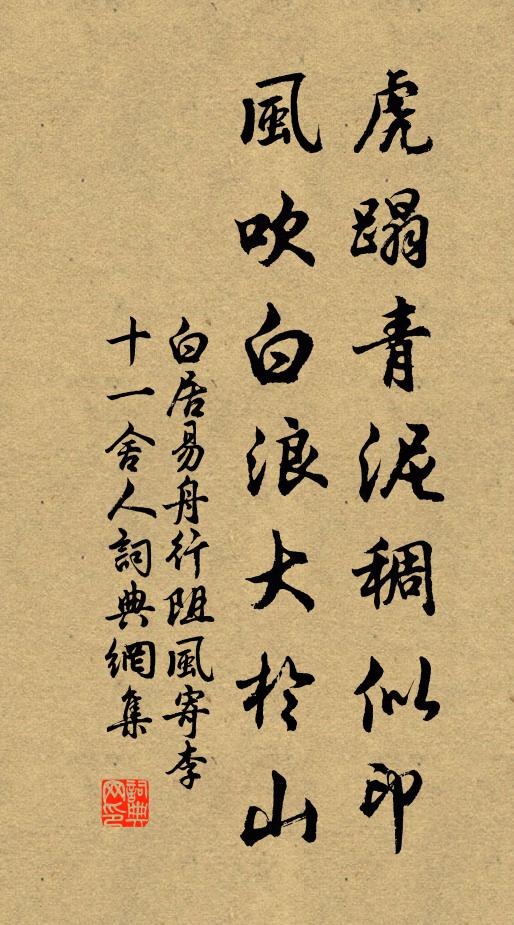 虎蹋青泥稠似印
風吹白浪大於山
白居易舟行阻風寄李
十一舍人詞典網集
詞典
网印